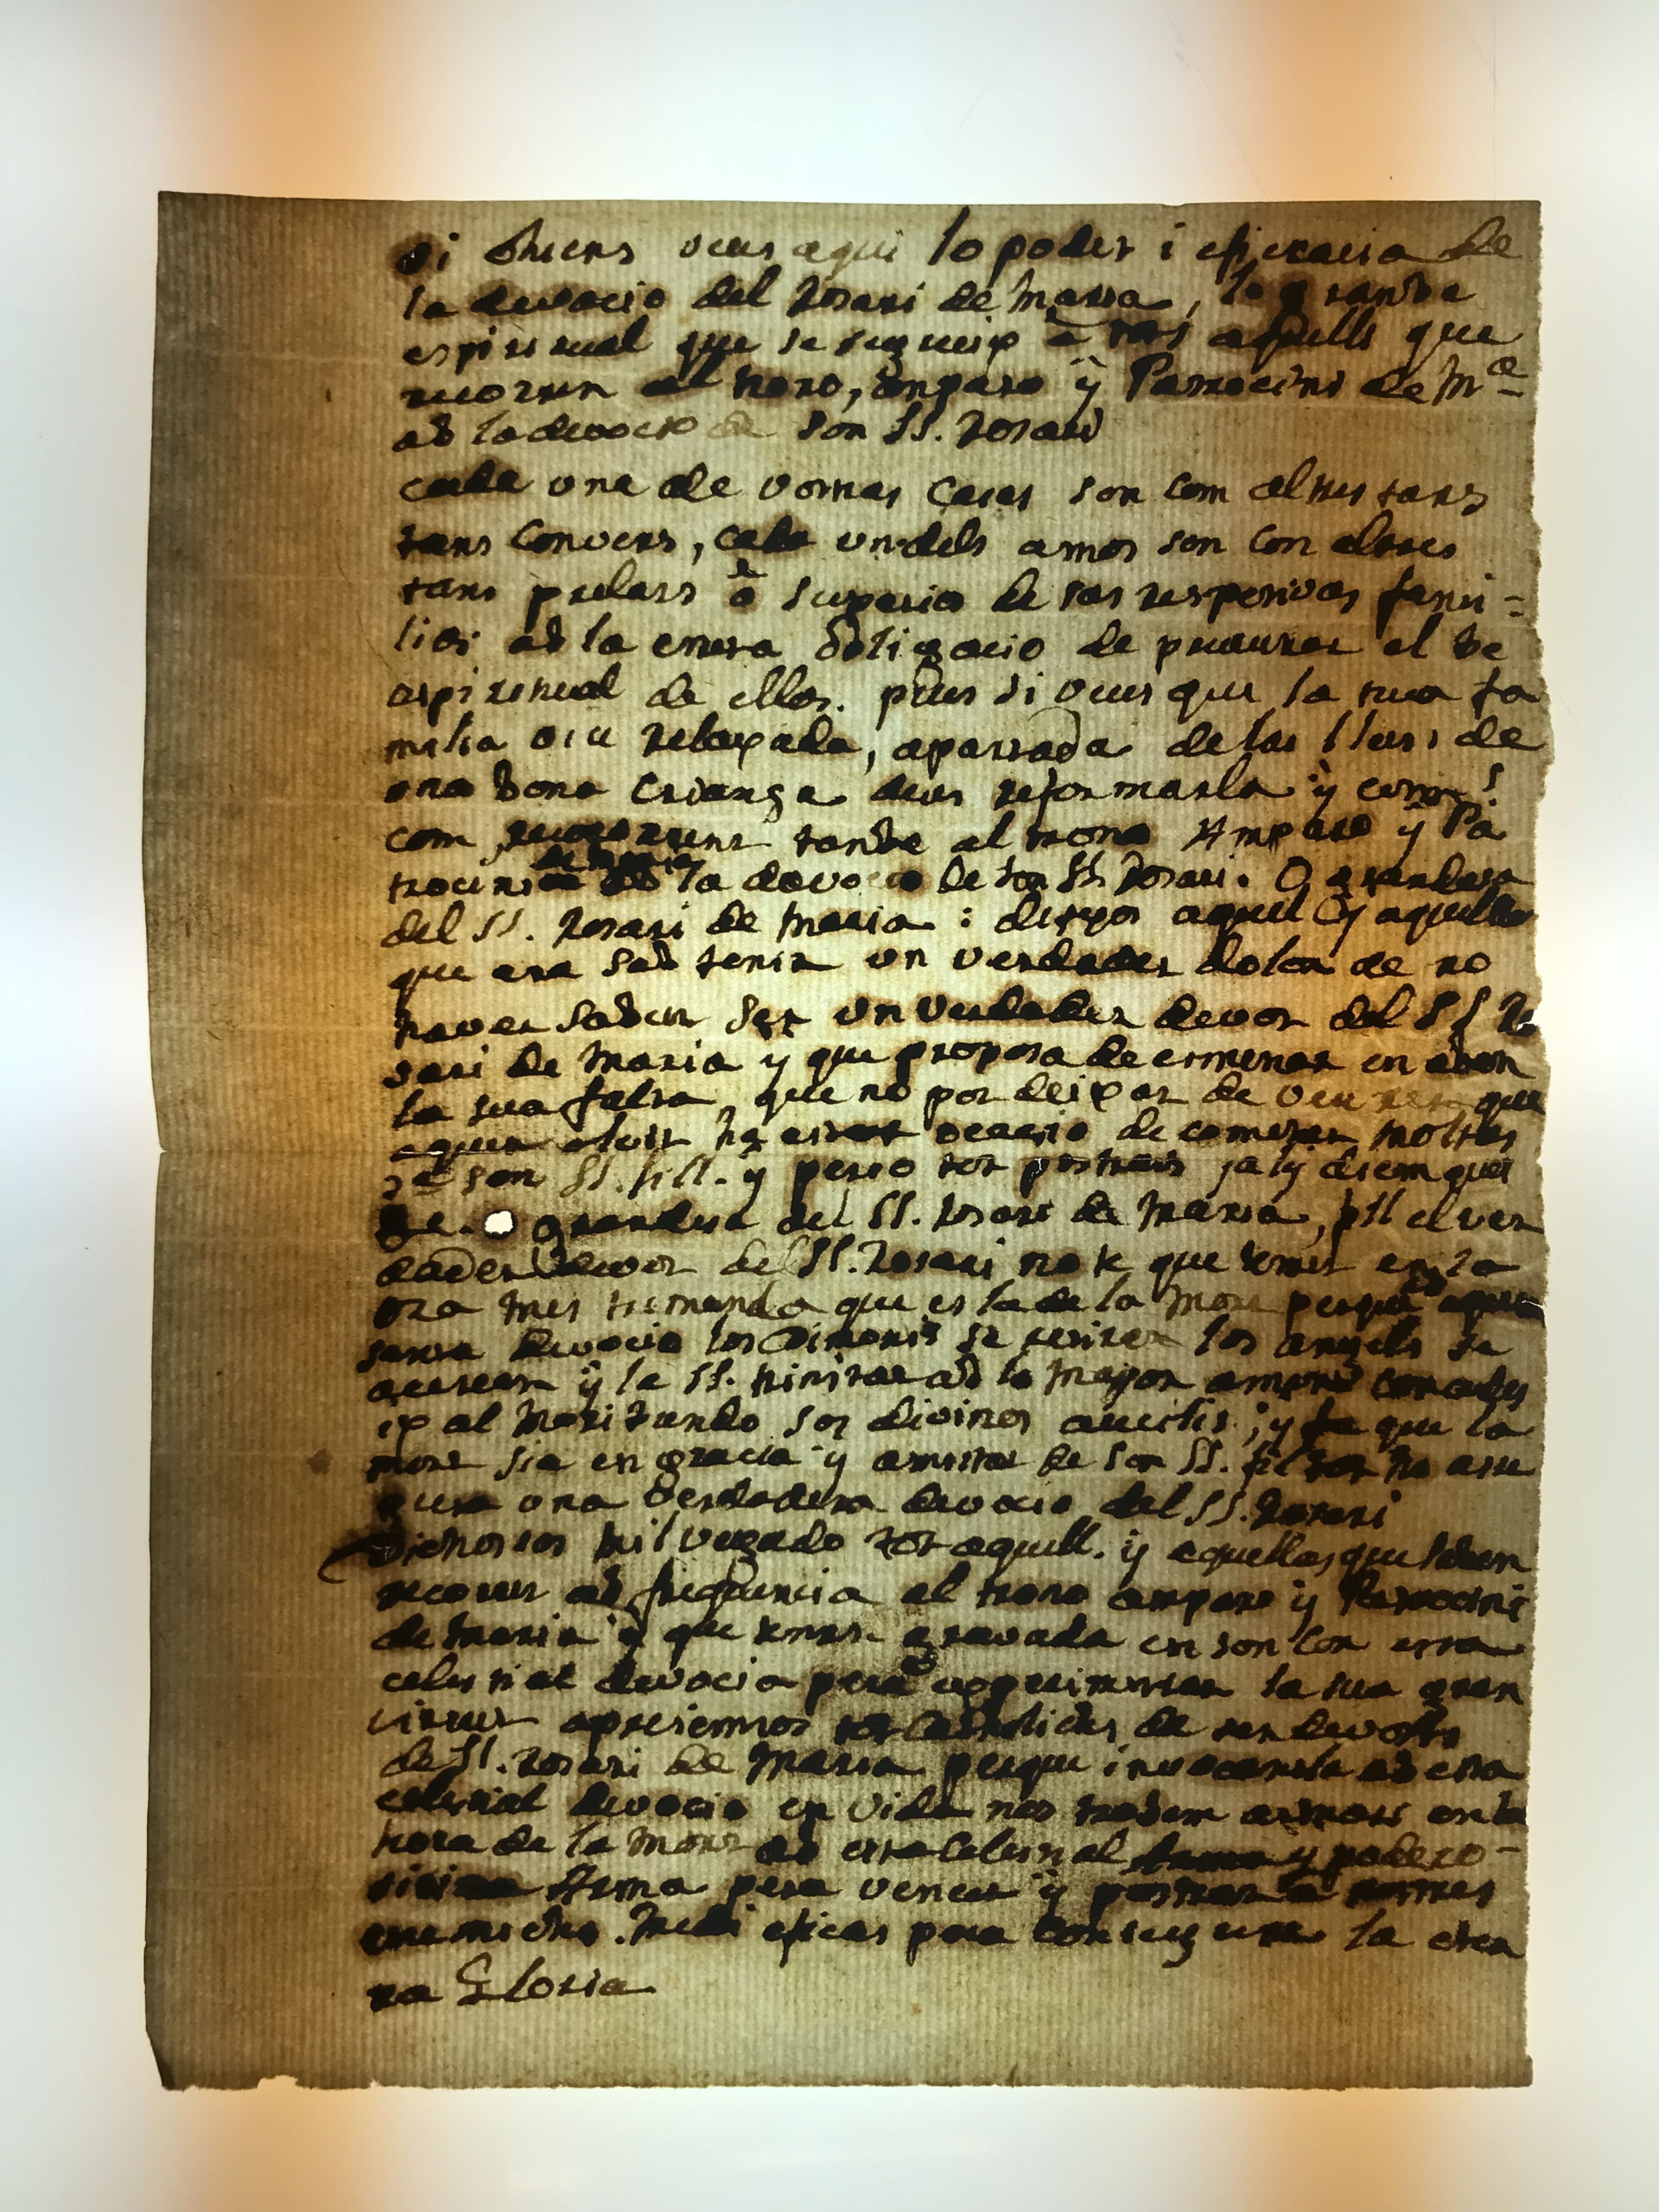 oi Ohients veus aqui lo poder i eficacia de
la devocio del Rosari de Maria, lo gran be
espiritual que se segueix à tots aquells que
recoren al trono, amparo ÿ Patrocini de Mª
ab la devocio de son SS. Rosari
cada una de vostras Casas son com altres tans
tans Convens, cada un dels amos son con altres
tans prelats ò Superio de sas respetivas fami-
lias ab la entera obligacio de procurar el be
espiritual de ellas. pues si veus que la tua fa
milia viu relaxada, apartada de las lleis de
una bona Criança deus reformarla ÿ
com recorrent tambe al trono Amparo ÿ Pa
trocini de Maria ab la devocio de son SS. Rosari. O grandesa
del SS. Rosari de Maria: ditxos aquel ÿ aquella
que ara sab tenir un verdader dolor de no
haver sabut ser un verdader devot del SS Ro
sari de Maria y que proposa de esmenar en abon
la sua falta, que no pot deixar de veurer que
aquex oluit ha estat ocasio de cometer moltas
son SS. fill. ÿ perço tot postrats ja lÿ diem que
. O grandesa del SS. Rosari de Maria, pues el ver
dader devot del SS. Rosari no te que temer en la
ora mes tremenda que es la de la mort perque ab aquesta
santa devocio los Dimonis se retiren los angels se
acercan ÿ la SS. trinitat ab la major amor concedes
ix al Moribundo sos divinos aucilis; y fa que la
mort sia en gracia y amistat de son SS. fill tot ho asse
gura una verdadera devocio del SS. Rosari
Dichosos mil vegadas tot aquell. ÿ aquellas que saben
recorrer ab freqüencia al trono amparo ÿ Patrocini
de Maria ÿ que tenen gravada en son Cor esta
celestial devocio pera esperimentar la sua gran
virtut apresiemnos tos Catolichs de ser devots
de SS. Rosari de Maria perque invocantla ab esta
celestial devocio en vida nos trobem armats en la
hora de la mort ab esta Celestial y podero-
sisima Arma pera vencer ÿ postrar a nostres
enemichs. Medi eficas pera conseguir la eter
na Gloria